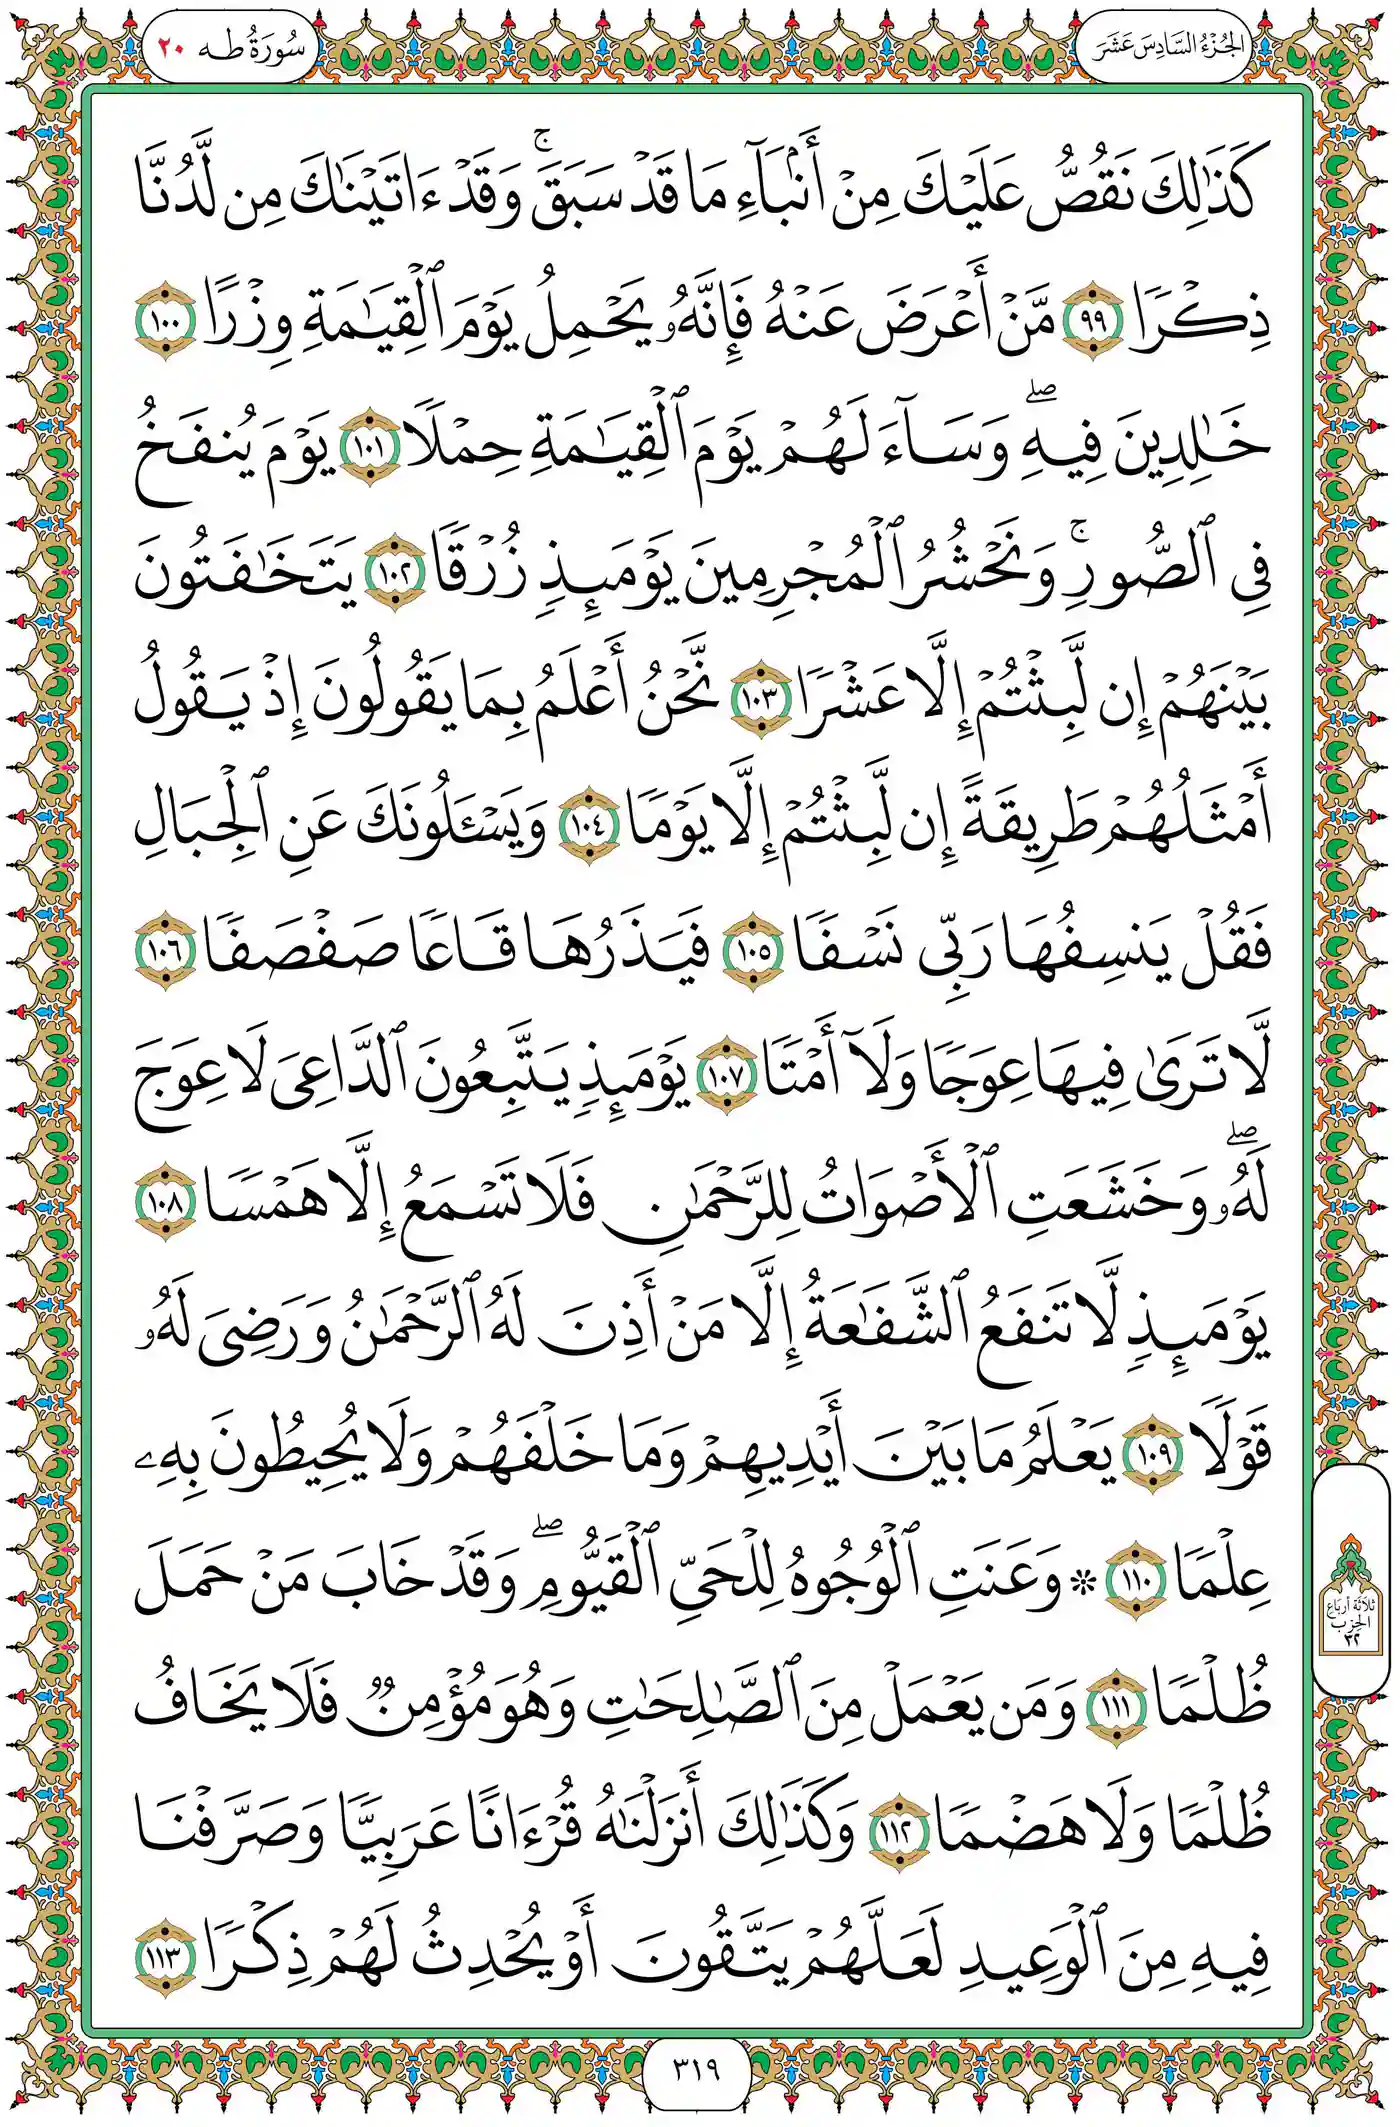 الجُزْءُ السَّادِسَ عَشَرَ
سُورَةُ طه ٢٠
كَذَٰلِكَ نَقُصُّ عَلَيْكَ مِنْ أَنۢبَآءِ مَا قَدْ سَبَقَ ۚ وَقَدْ ءَاتَيْنَٰكَ مِن لَّدُنَّا
ذِكْرًا ٩٩ مَّنْ أَعْرَضَ عَنْهُ فَإِنَّهُۥ يَحْمِلُ يَوْمَ ٱلْقِيَٰمَةِ وِزْرًا ١٠٠
خَٰلِدِينَ فِيهِ ۖ وَسَآءَ لَهُمْ يَوْمَ ٱلْقِيَٰمَةِ حِمْلًا ١٠١ يَوْمَ يُنفَخُ
فِى ٱلصُّورِ ۚ وَنَحْشُرُ ٱلْمُجْرِمِينَ يَوْمَئِذٍ زُرْقًا ١٠٢ يَتَخَٰفَتُونَ
بَيْنَهُمْ إِن لَّبِثْتُمْ إِلَّا عَشْرًا ١٠٣ نَّحْنُ أَعْلَمُ بِمَا يَقُولُونَ إِذْ يَقُولُ
أَمْثَلُهُمْ طَرِيقَةً إِن لَّبِثْتُمْ إِلَّا يَوْمًا ١٠٤ وَيَسْـَٔلُونَكَ عَنِ ٱلْجِبَالِ
فَقُلْ يَنسِفُهَا رَبِّى نَسْفًا ١٠٥ فَيَذَرُهَا قَاعًا صَفْصَفًا ١٠٦
لَّا تَرَىٰ فِيهَا عِوَجًا وَلَآ أَمْتًا ١٠٧ يَوْمَئِذٍ يَتَّبِعُونَ ٱلدَّاعِىَ لَا عِوَجَ
لَهُۥ ۖ وَخَشَعَتِ ٱلْأَصْوَاتُ لِلرَّحْمَٰنِ فَلَا تَسْمَعُ إِلَّا هَمْسًا ١٠٨
يَوْمَئِذٍ لَّا تَنفَعُ ٱلشَّفَٰعَةُ إِلَّا مَنْ أَذِنَ لَهُ ٱلرَّحْمَٰنُ وَرَضِىَ لَهُۥ
قَوْلًا ١٠٩ يَعْلَمُ مَا بَيْنَ أَيْدِيهِمْ وَمَا خَلْفَهُمْ وَلَا يُحِيطُونَ بِهِۦ
عِلْمًا ١١٠ * وَعَنَتِ ٱلْوُجُوهُ لِلْحَىِّ ٱلْقَيُّومِ ۖ وَقَدْ خَابَ مَنْ حَمَلَ
ظُلْمًا ١١١ وَمَن يَعْمَلْ مِنَ ٱلصَّٰلِحَٰتِ وَهُوَ مُؤْمِنٌ فَلَا يَخَافُ
ظُلْمًا وَلَا هَضْمًا ١١٢ وَكَذَٰلِكَ أَنزَلْنَٰهُ قُرْءَانًا عَرَبِيًّا وَصَرَّفْنَا
فِيهِ مِنَ ٱلْوَعِيدِ لَعَلَّهُمْ يَتَّقُونَ أَوْ يُحْدِثُ لَهُمْ ذِكْرًا ١١٣
ثلاثة أرباع
الحزب
٣٢
٣١٩